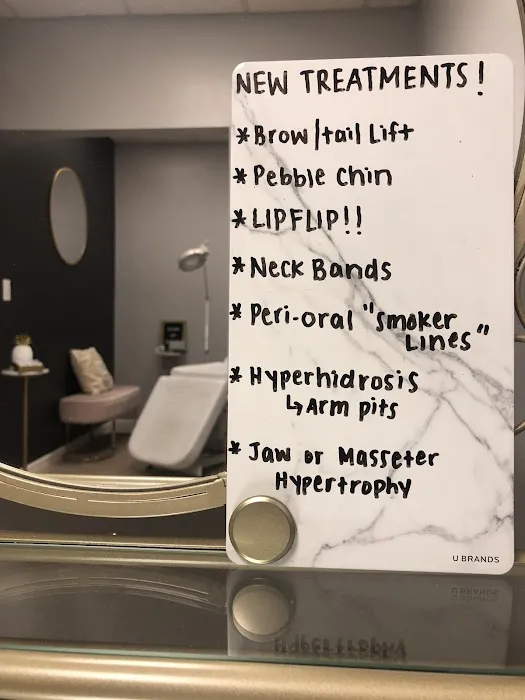 NEW TREATMENTS!
* Brow/tail Lift
* Pebble Chin
* LIPFLIP!!
* Neck Bands
* Peri-oral "smoker
Lines"
* Hyperhidrosis
↳ Arm pits
* Jaw or Masseter
Hypertrophy
U BRANDS